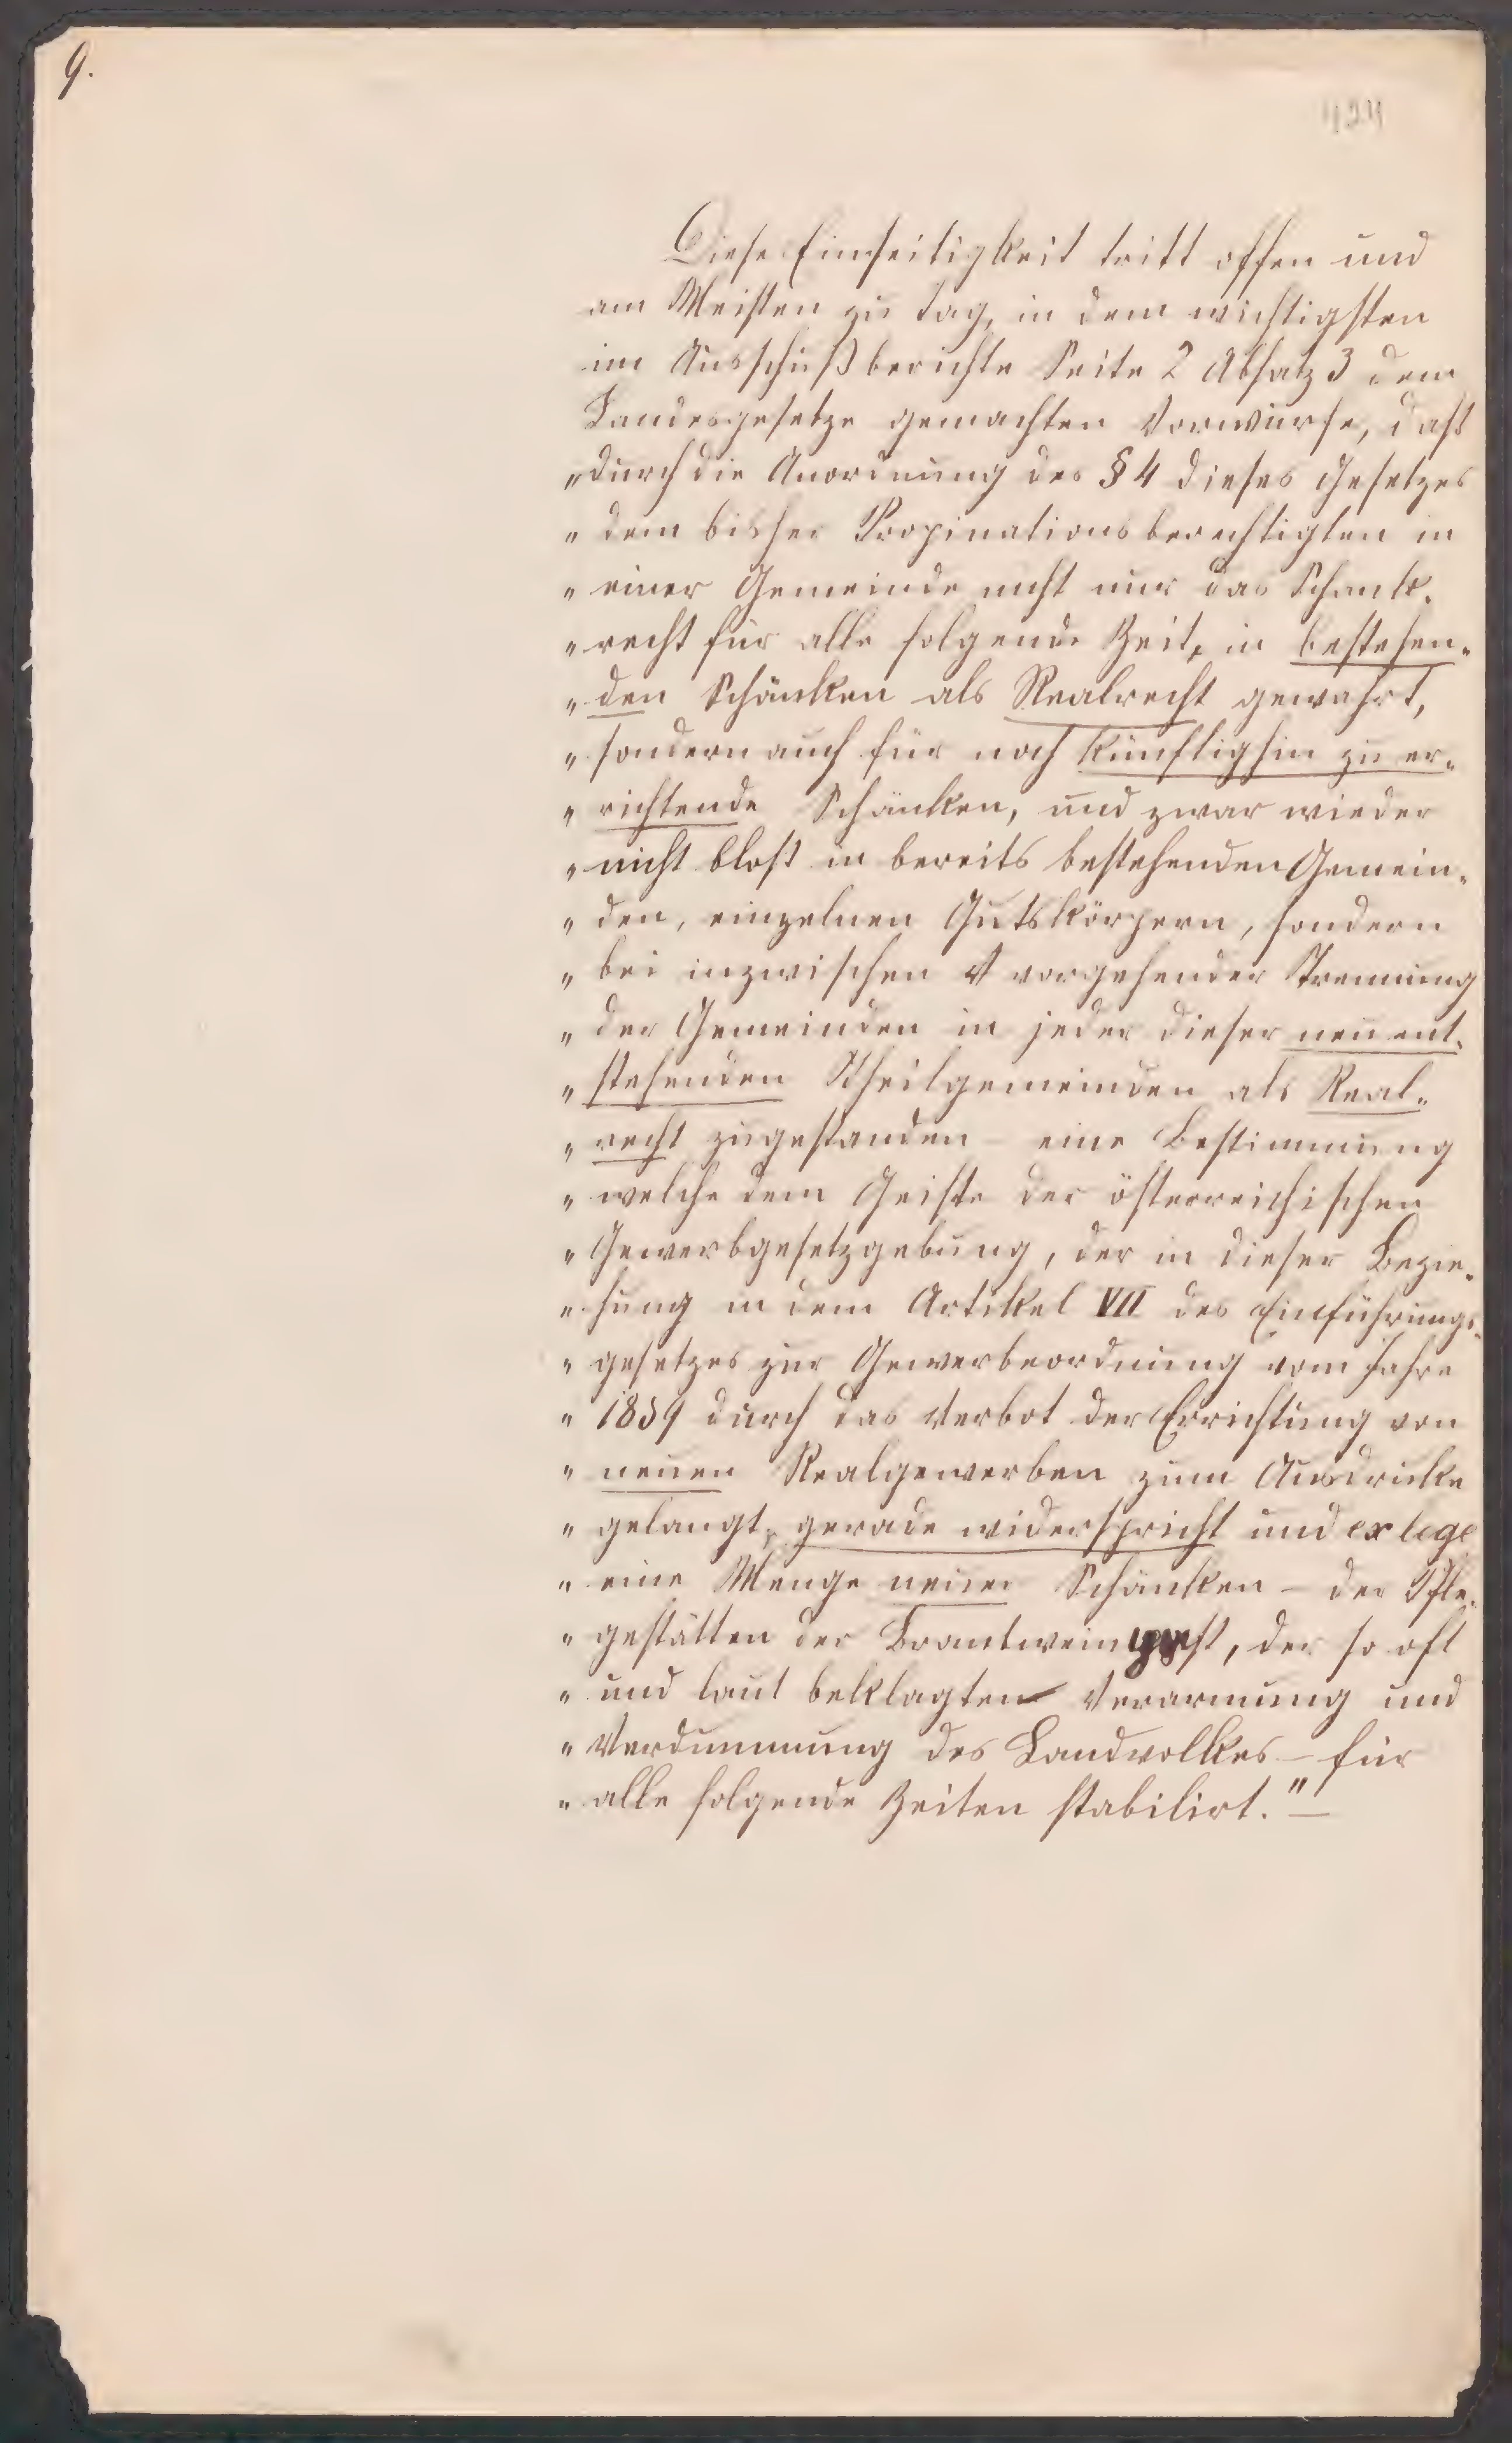 9.
Diese Einseitigkeit tritt offen und
am Meisten zu tag, in dem wichtigsten
im Ausschußberichte Seite 2 Absatz 3 dem
Landesgesetze gemachten Vorwurfe, dass
„durch die Anordnung des § 4 dieses Gesetzes
„dem bisher Propinationsberechtigten in
„einer Gemeinde nicht nur das Schank-
„recht für alle folgende Zeit, in bestehen-
„den Schänken als Realrecht gewahrt,
„sondern auch für noch künftighin zu er-
„richtende Schänken, und zwar wieder
„nicht bloss in bereits bestehenden Gemein-
„den, einzelnen Gutskörpern, sondern
„bei inzwischen vorgehender Trennung
„der Gemeinden in jeder dieser neu ent-
„stehenden Theilgemeinden als Real-
„recht zugestanden – eine Bestimmung
„welche dem Geiste der österreichischen
„Gewerbgesetzgebung, der in dieser Bezie-
„hung in dem Artikel VII des Einführungs-
„gesetzes zur Gewerbeordnung vom Jahre
„1859 durch das Verbot der Errichtung von
„neuen Realgewerben zum Ausdrucke
„gelangt, gerade widerspricht und ex lege
„eine Menge neuer Schänken – der Pfle-
„gestätten der Brantweinpest, der so oft
„und laut beklagten Verarmung und
„Verdummung des Landvolkes – für
„alle folgende Zeiten stabilirt."–